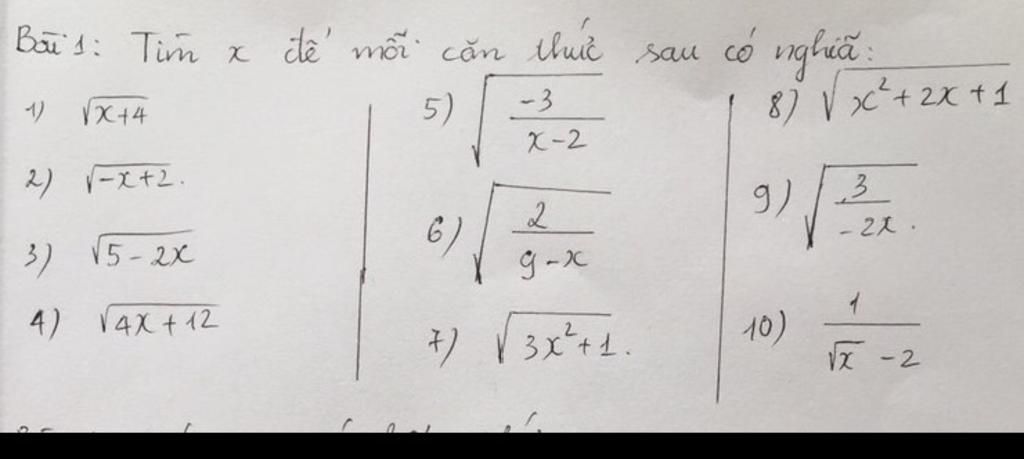 Bài 1: Tìm x để mỗi căn thức sau có nghĩa:
1) √(x+4)
2) √(-x+2).
3) √(5-2x)
4) √(4x+12)
5) √(-3/(x-2))
6) √(2/(9-x))
7) √(3x²+1).
8) √(x²+2x+1)
9) √(3/(-2x)).
10) 1/(√x -2)